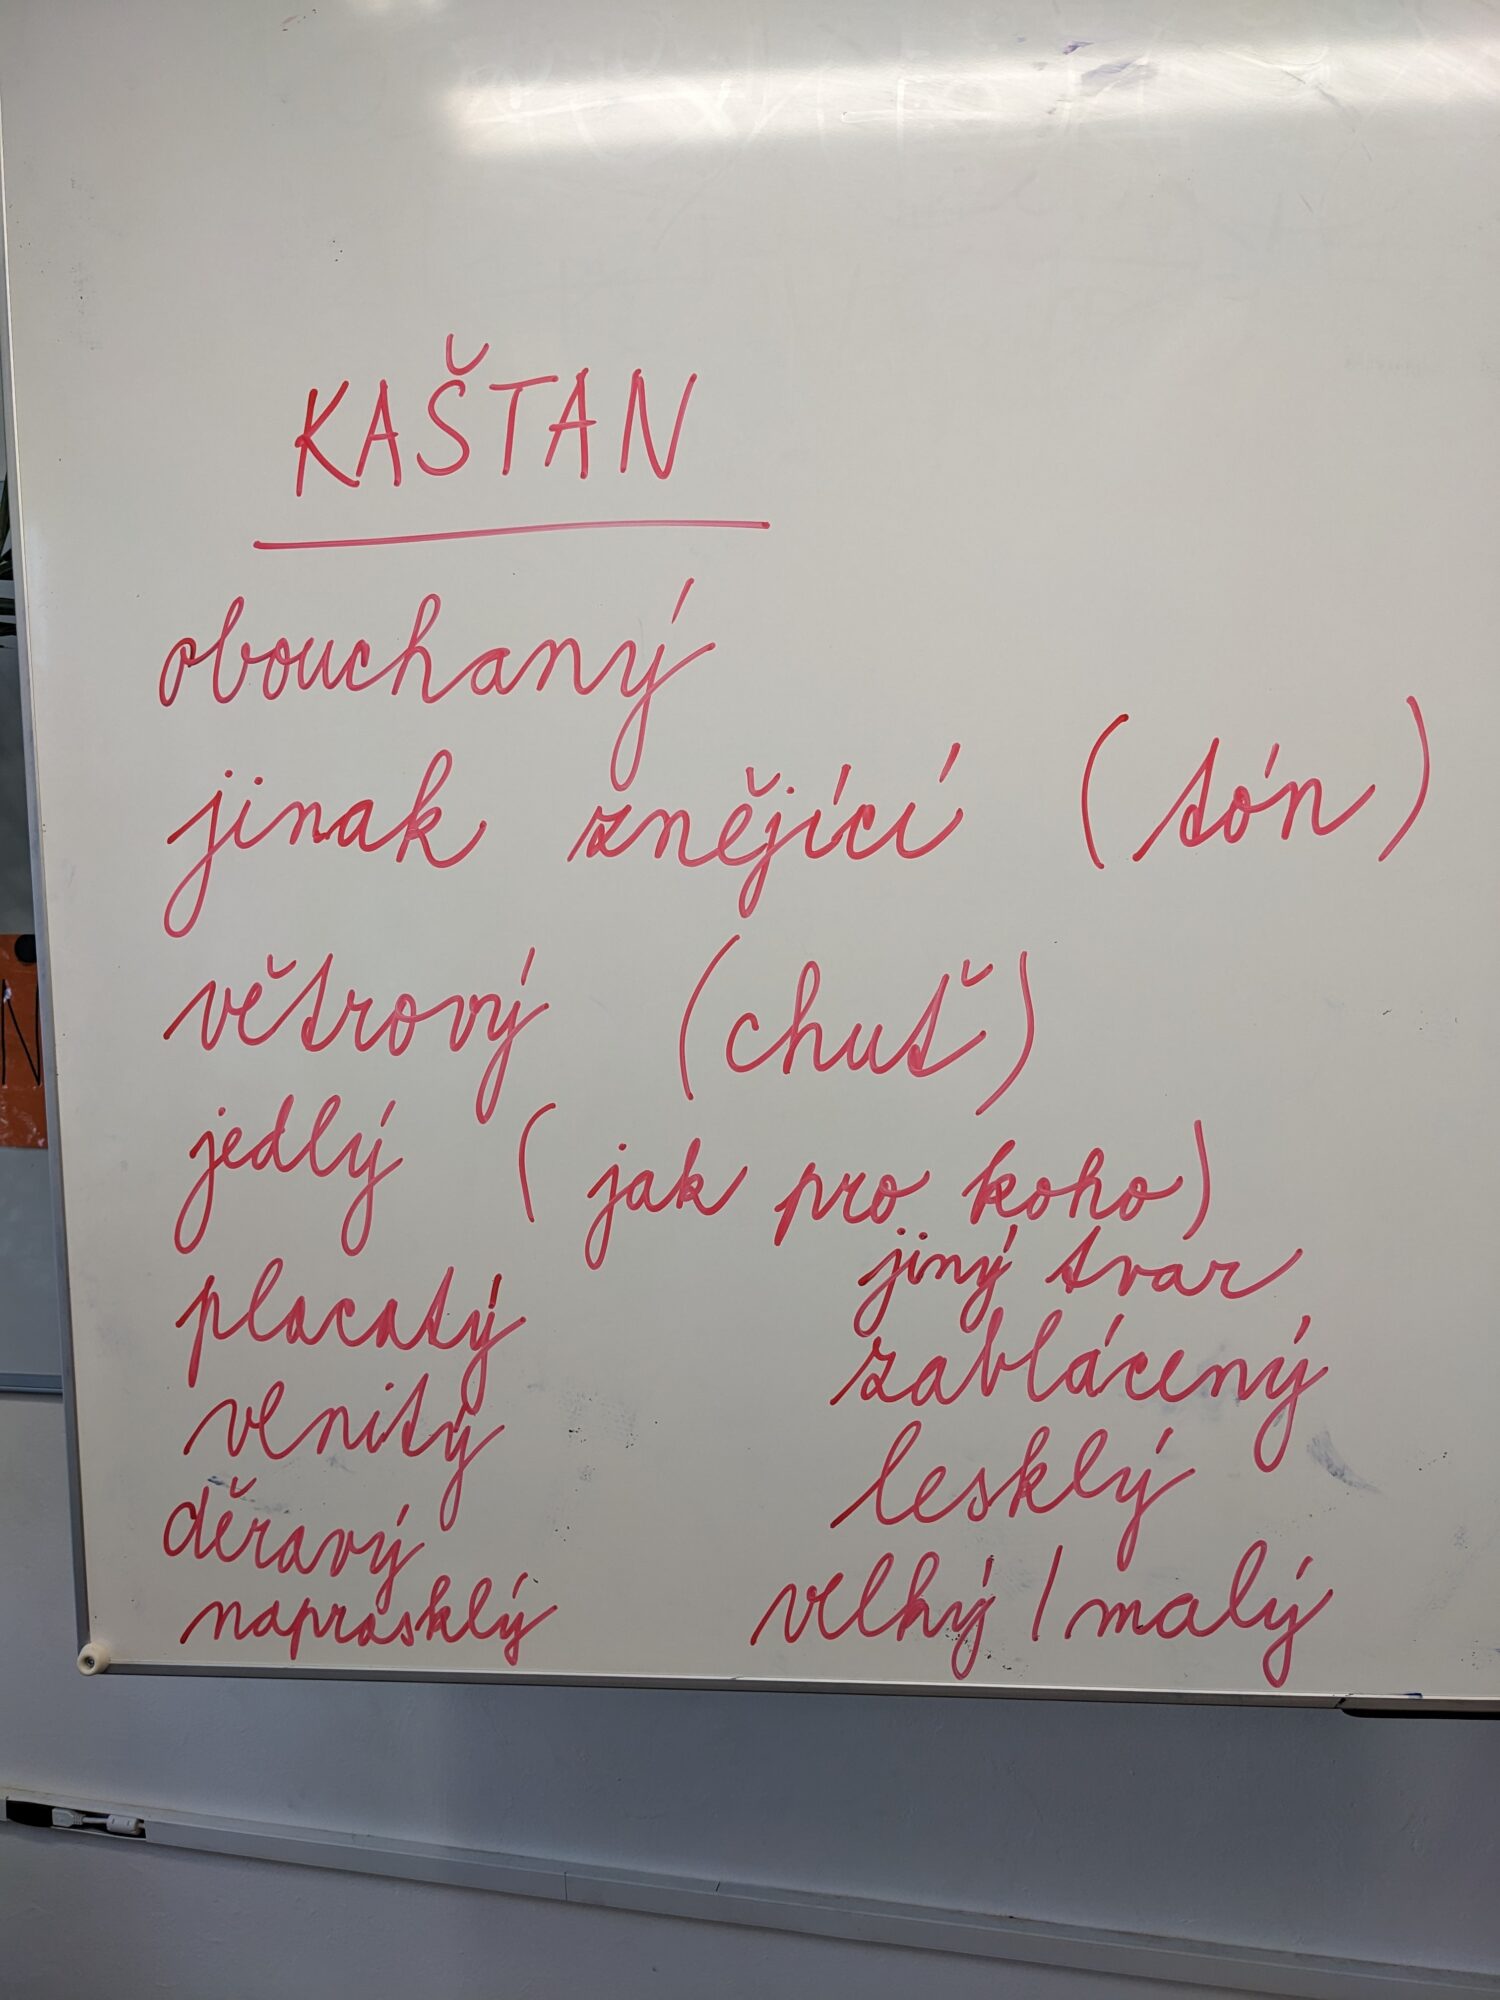 KAŠTAN
obouchaný
jinak znějící (tón)
větrový (chuť)
jedlý (jak pro koho)
placatý
vlnitý
děravý
naprasklý
jiný tvar
zablácený
lesklý
velký / malý
N